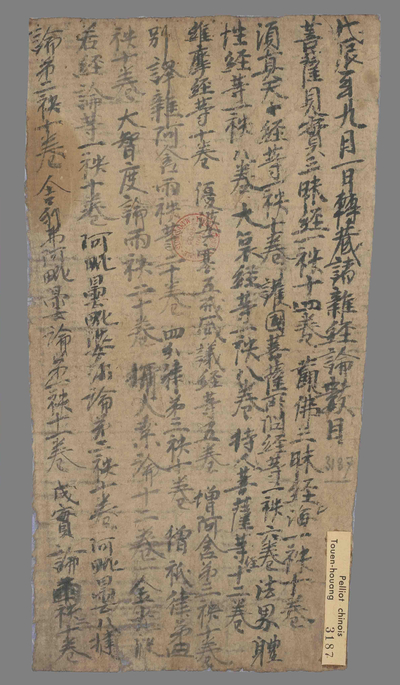 戊辰年九月一日轉藏諸雜經論數目
菩薩見實三昧經一袟十四卷 觀佛三昧經海一袟十卷
須真天子經等一袟十卷 護國菩薩所問經等一袟六卷 法界體
性經等一袟八卷 大集經等袟八卷 持人菩薩等十二卷
維摩經等十卷 優婆塞五戒威儀經等五卷 增阿含第一袟十卷
別譯雜阿含兩袟等二十卷 四分律第三袟十卷 僧祇律第四
袟十卷 大智度論兩袟二十卷 攝大乘論十二卷 金剛般
若經論等一袟十卷 阿毗曇毗婆沙論第二袟十卷 阿毗曇八揵
論第一袟十卷 舍利弗阿毗曇論第一袟十一卷 成實論兩袟十卷
3187
Pelliot chinois
Touen-houang
3187